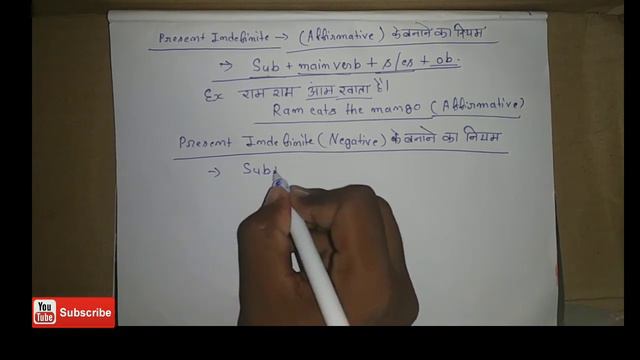 Present Indefinite → (Affirmative) के बनाने का नियम
→ Sub + main verb + s/es + ob.
Ex राम राम आंम खाता है।
Ram eats the mango (Affirmative)
Present Indefinite (Negative) के बनाने का नियम
→ Sub
You Tube Subscribe